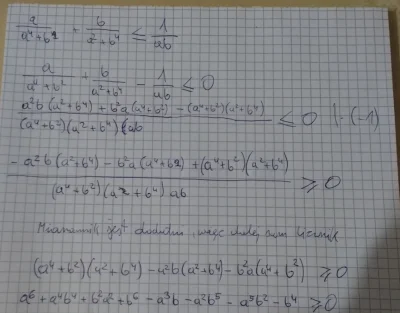 a/(a⁴+b²) + b/(a²+b⁴) ≤ 1/(ab)
a/(a⁴+b²) + b/(a²+b⁴) - 1/(ab) ≤ 0
(a²b(a²+b⁴) + b²a(a⁴+b²) - (a⁴+b²)(a²+b⁴))/((a⁴+b²)(a²+b⁴)ab) ≤ 0 |·(-1)
(-a²b(a²+b⁴) - b²a(a⁴+b²) + (a⁴+b²)(a²+b⁴))/((a⁴+b²)(a²+b⁴)ab) ≥ 0
Mianownik jest dodatni, więc sam licznik
(a⁴+b²)(a²+b⁴) - a²b(a²+b⁴) - b²a(a⁴+b²) ≥ 0
a⁶ + a⁴b⁴ + b²a² + b⁶ - a⁴b - a²b⁵ - a⁵b² - b⁴ ≥ 0